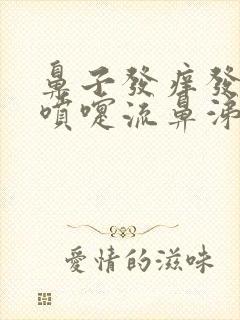 鼻子發癢發
噴嚏流鼻涕
愛情的滋味